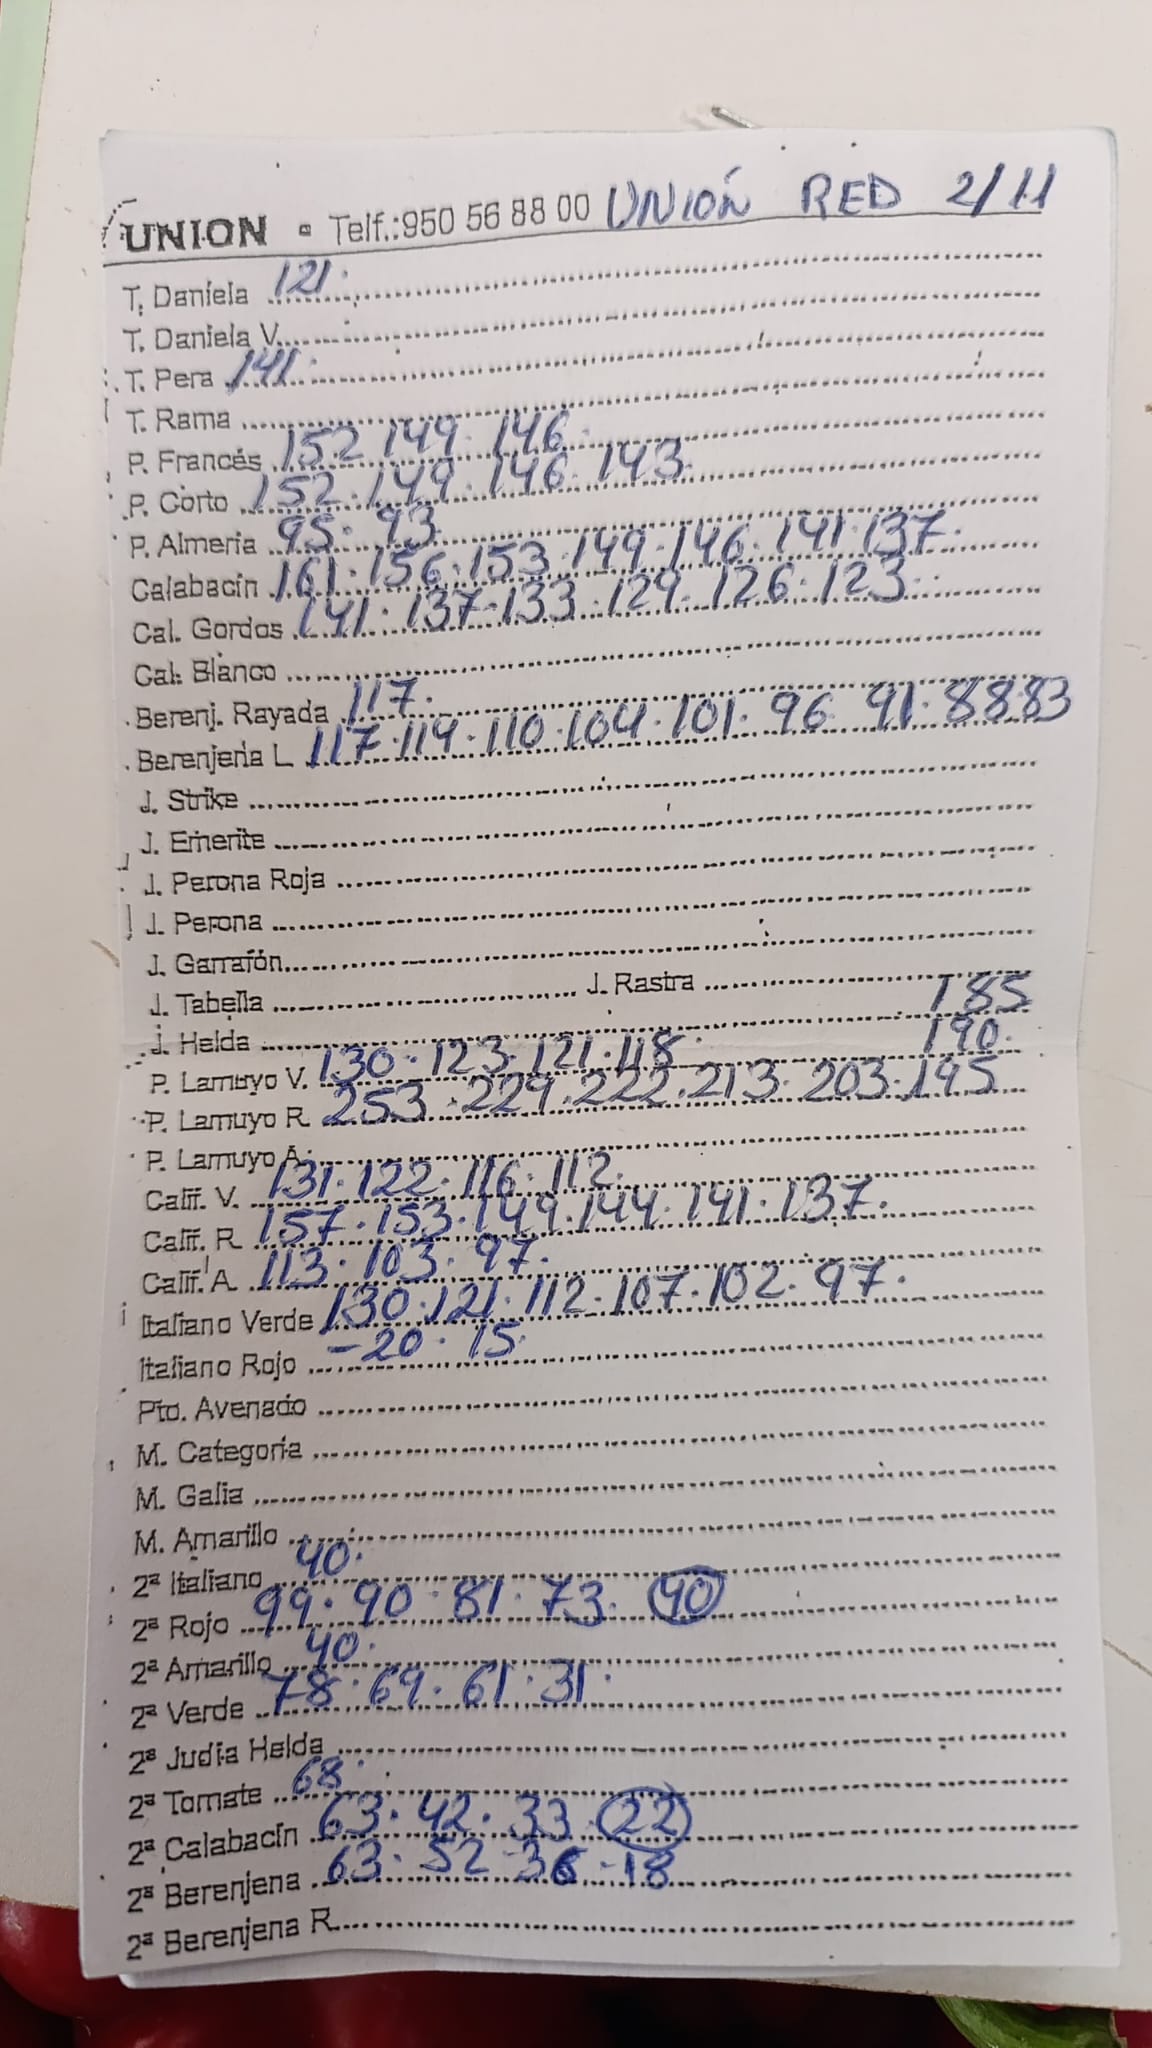 UNION - Telf.:950 56 88 00 UNIÓN RED 2/11
T. Daniela 121.
T. Daniela V.
T. Pera 141.
T. Rama
P. Francés 152 149. 146.
P. Corto 152.149.146.143.
P. Almeria 95. 93
Calabacín 161.156.153.149.146.141.137.
Cal. Gordos 141.137.133.129.126.123.
Cal. Blanco
Berenj. Rayada 117.
Berenjena L. 117.114.110.104.101.96 91.88.83
J. Strike
J. Emerite
J. Perona Roja
J. Perona
J. Garrafón
J. Tabella J. Rastra
J. Helda
185
190.
P. Lamuyo V. 130.123.121.118.
P. Lamuyo R. 253.229.222.213.203.195
P. Lamuyo A.
Calif. V. 131.122.116.112.
Calif. R. 157.153.149.144.141.137.
Calif. A. 113.103.97.
Italiano Verde 130.121.112.107.102.97.
-20.15.
Italiano Rojo
Pto. Avenado
M. Categoría
M. Galia
M. Amarillo
2ª Italiano 40.
2ª Rojo 99.90.81.73. 40
2ª Amarillo 40.
2ª Verde 78.69.61.31.
2ª Judia Helda
2ª Tomate 68.
2ª Calabacín 63.42.33.22
2ª Berenjena 63.52 36-18
2ª Berenjena R.